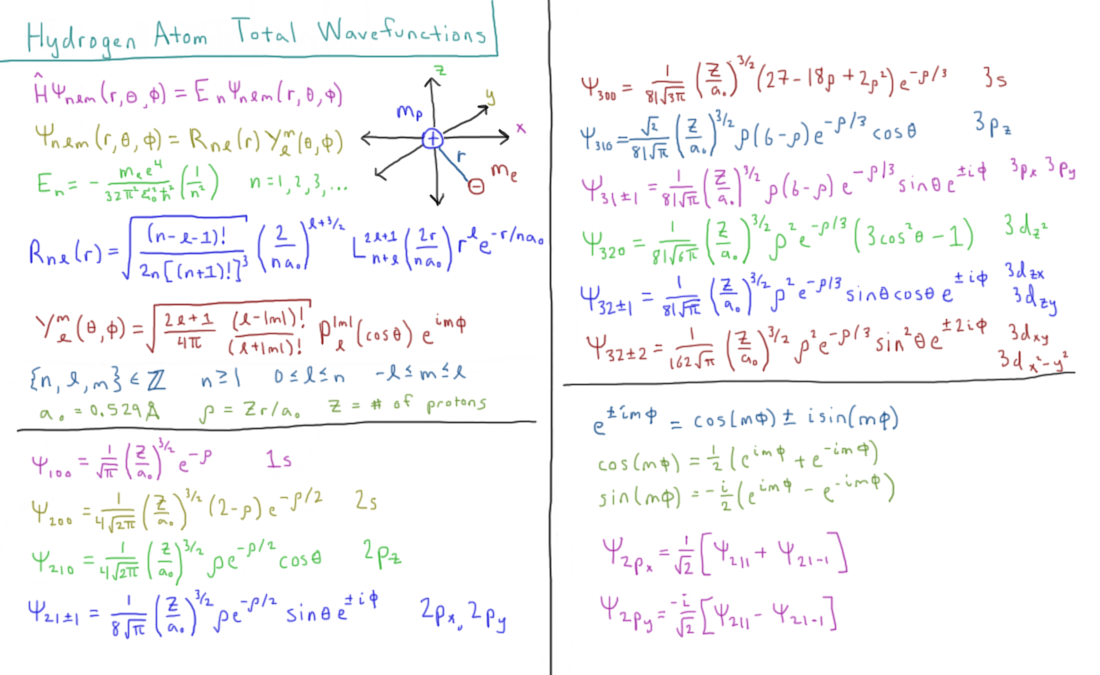 Hydrogen Atom Total Wavefunctions
ĤΨₙₑₘ(r,θ,φ) = EₙΨₙₗₘ(r,θ,φ)
Ψₙₑₘ(r,θ,φ) = Rₙₑ(r) Yₑᵐ(θ,φ)
Eₙ = - mₑe⁴/(32π²ε₀²ħ²) (1/n²) n=1,2,3,...
z
y
x
m_p
+
r
−
mₑ
Rₙₑ(r) = √((n-ℓ-1)!/(2n[(n+1)!]³)) (2/(na₀))^(ℓ+3/2) L_(n+ℓ)^(2ℓ+1) (2r/(na₀)) r^ℓ e^(-r/na₀)
Y_ℓ^m(θ,φ) = √((2ℓ+1)/(4π) (ℓ-|m|)!/(ℓ+|m|)!) P_ℓ^|m|(cosθ) e^(imφ)
{n,ℓ,m} ∈ ℤ n≥1 0≤ℓ≤n -ℓ≤m≤ℓ
a₀ = 0.529Å ρ = Zr/a₀ Z = # of protons
Ψ₁₀₀ = 1/√π (Z/a₀)^(3/2) e^(-ρ) 1s
Ψ₂₀₀ = 1/(4√(2π)) (Z/a₀)^(3/2) (2-ρ) e^(-ρ/2) 2s
Ψ₂₁₀ = 1/(4√(2π)) (Z/a₀)^(3/2) ρe^(-ρ/2) cosθ 2p_z
Ψ₂₁±₁ = 1/(8√π) (Z/a₀)^(3/2) ρe^(-ρ/2) sinθ e^(±iφ) 2pₓ, 2p_y
Ψ₃₀₀ = 1/(81√(3π)) (Z/a₀)^(3/2) (27-18ρ+2ρ²) e^(-ρ/3) 3s
Ψ₃₁₀ = √2/(81√π) (Z/a₀)^(3/2) ρ(6-ρ) e^(-ρ/3) cosθ 3p_z
Ψ₃₁±₁ = 1/(81√π) (Z/a₀)^(3/2) ρ(6-ρ) e^(-ρ/3) sinθ e^(±iφ) 3pₓ 3p_y
Ψ₃₂₀ = 1/(81√(6π)) (Z/a₀)^(3/2) ρ² e^(-ρ/3) (3cos²θ-1) 3d_z²
Ψ₃₂±₁ = 1/(81√π) (Z/a₀)^(3/2) ρ² e^(-ρ/3) sinθcosθ e^(±iφ) 3d_zx
3d_zy
Ψ₃₂±₂ = 1/(162√π) (Z/a₀)^(3/2) ρ² e^(-ρ/3) sin²θ e^(±2iφ) 3d_xy
3d_x²-y²
e^(±imφ) = cos(mφ) ± isin(mφ)
cos(mφ) = 1/2 (e^(imφ) + e^(-imφ))
sin(mφ) = -i/2 (e^(imφ) - e^(-imφ))
Ψ₂pₓ = 1/√2 [Ψ₂₁₁ + Ψ₂₁₋₁]
Ψ₂p_y = -i/√2 [Ψ₂₁₁ - Ψ₂₁₋₁]